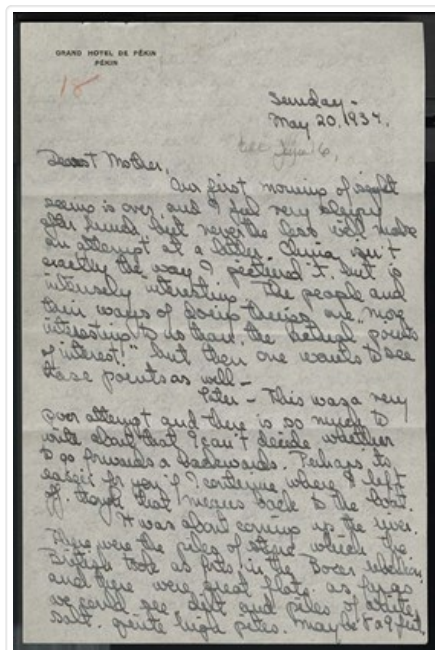 GRAND HOTEL DE PÉKIN
PÉKIN
18
Sunday -
May 20, 1934.
Dearest Mother,
Our first morning of sight
seeing is over, and I feel very sleepy
after lunch but never the less will make
an attempt at a letter. China isn't
exactly the way I pictured it, but is
intensely interesting. The people and
their ways of doing things are more
interesting to us than the actual "points
of interest!" but then one wants to see
these points as well -
Later - This was a very
poor attempt and there is so much to
write about that I can't decide whether
to go forwards or backwards. Perhaps its
easier for you if I continue where I left
off, though that means back to the boat.
It was about coming up the river.
There were the piles of stone which the
British took as forts in the Boxer rebellion
and there were great flats as far as
we could see, dotted piles of white
salt. quite high piles. maybe 8 or 9 feet.